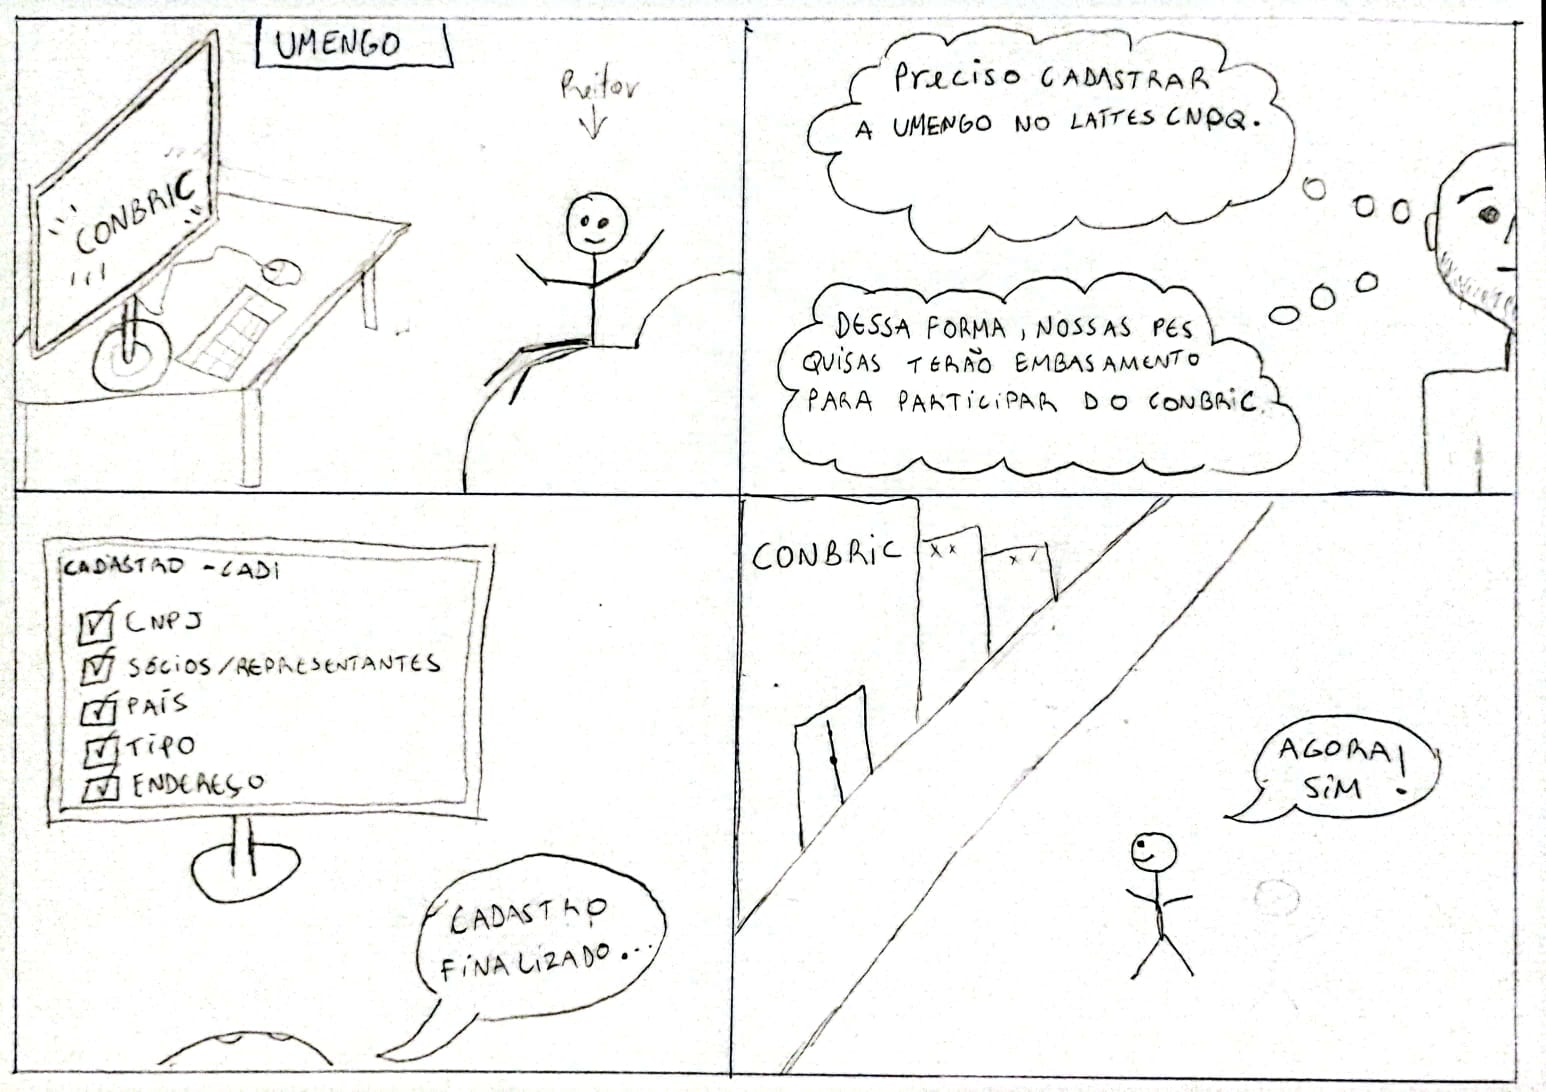 UMENGO
Reitor
CONBRIC
Preciso CADASTRAR
A UMENGO NO LATTES CNPQ.
DESSA FORMA, NOSSAS PES
QUISAS TERÃO EMBASAMENTO
PARA PARTICIPAR DO CONBRIC.
CADASTRO - CADI
CNPJ
SÓCIOS/REPRESENTANTES
PAÍS
TIPO
ENDEREÇO
CADASTRO
FINALIZADO...
CONBRIC
AGORA
SIM!